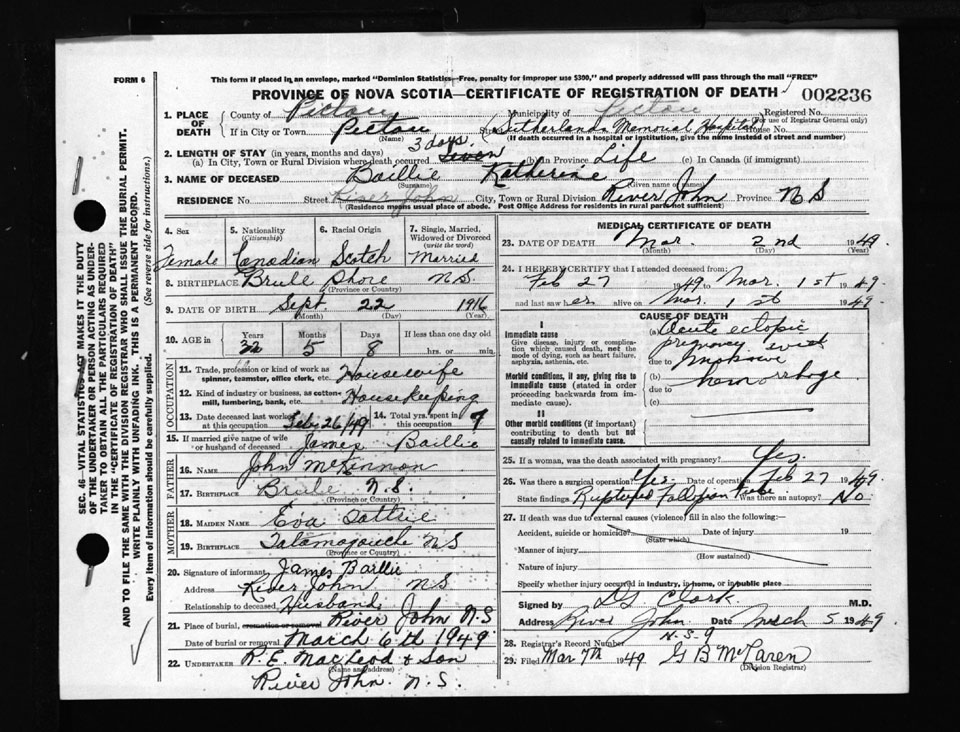 FORM 6
This form if placed in an envelope, marked "Dominion Statistics—Free, penalty for improper use $300," and properly addressed will pass through the mail "FREE"
PROVINCE OF NOVA SCOTIA—CERTIFICATE OF REGISTRATION OF DEATH 002236
1. PLACE OF DEATH County of Pictou Municipality of Pictou Registered No.
(For use of Registrar General only)
If in City or Town Pictou Street Sutherland Memorial Hospital House No.
(Name) (If death occurred in a hospital or institution, give the name instead of street and number)
2. LENGTH OF STAY (in years, months and days) 3 days.
(a) In City, Town or Rural Division where death occurred (b) in Province Life (c) In Canada (if immigrant)
3. NAME OF DECEASED Baillie Katherine
(Surname) (Given name or names)
RESIDENCE No. Street River John City, Town or Rural Division River John Province N S
(Residence means usual place of abode. Post Office Address for residents in rural parts not sufficient)
4. Sex Female
5. Nationality (Citizenship) Canadian
6. Racial Origin Scotch
7. Single, Married, Widowed or Divorced (write the word) Married
8. BIRTHPLACE Brule Shore N S.
(Province or Country)
9. DATE OF BIRTH Sept 22 1916
(Month) (Day) (Year)
10. AGE in Years Months Days If less than one day old
32 5 8 hrs. or min.
OCCUPATION
11. Trade, profession or kind of work as spinner, teamster, office clerk, etc. Housewife
12. Kind of industry or business, as cotton-mill, lumbering, bank, etc. House keeping
13. Date deceased last worked at this occupation Feb 26/49 14. Total yrs. spent in this occupation 7
15. If married give name of wife or husband of deceased James Baillie
FATHER
16. NAME John McKinnon
17. BIRTHPLACE Brule N.S.
(Province or Country)
MOTHER
18. MAIDEN NAME Eva
19. BIRTHPLACE Tatamagouche N S
(Province or Country)
20. Signature of informant James Baillie
Address River John N S
Relationship to deceased Husband
21. Place of burial, cremation or removal River John N.S
Date of burial or removal March 6th 1949
22. UNDERTAKER R. E. MacLeod & Son
(Name and address)
River John. N.S.
MEDICAL CERTIFICATE OF DEATH
23. DATE OF DEATH Mar. 2nd 1949.
(Month) (Day)
24. I HEREBY CERTIFY that I attended deceased from:
Feb 27 1949 to Mar. 1st 1949
and last saw her alive on Mar. 1st 1949.
CAUSE OF DEATH
I
Immediate cause
Give disease, injury or complication which caused death, not the mode of dying, such as heart failure, asphyxia, asthenia, etc.
(a) Acute ectopic
pregnancy with
due to
Morbid conditions, if any, giving rise to immediate cause (stated in order proceeding backwards from immediate cause).
(b) hemorrhage
due to
(c)
II
Other morbid conditions (if important) contributing to death but not causally related to immediate cause.
25. If a woman, was the death associated with pregnancy? Yes.
26. Was there a surgical operation? Yes. Date of operation Feb 27 1949
State findings Ruptured Fallopian tube Was there an autopsy? No
27. If death was due to external causes (violence) fill in also the following:—
Accident, suicide or homicide? Date of injury 19
(State which)
Manner of injury
(How sustained)
Nature of injury
Specify whether injury occurred in industry, in home, or in public place
Signed by D G. Clark M.D.
Address River John Date March 5 1949
N.S.
28. Registrar's Record Number 9
29. Filed Mar 7th 1949 G B McLaren
(Division Registrar)
SEC. 46—VITAL STATISTICS ACT MAKES IT THE DUTY
OF THE UNDERTAKER OR PERSON ACTING AS UNDER-
TAKER TO OBTAIN ALL THE PARTICULARS REQUIRED
IN THE "CERTIFICATE OF REGISTRATION OF DEATH"
AND TO FILE THE SAME WITH THE DIVISION REGISTRAR WHO SHALL ISSUE THE BURIAL PERMIT.
WRITE PLAINLY WITH UNFADING INK. THIS IS A PERMANENT RECORD.
Every item of information should be carefully supplied. (See reverse side for instructions.)